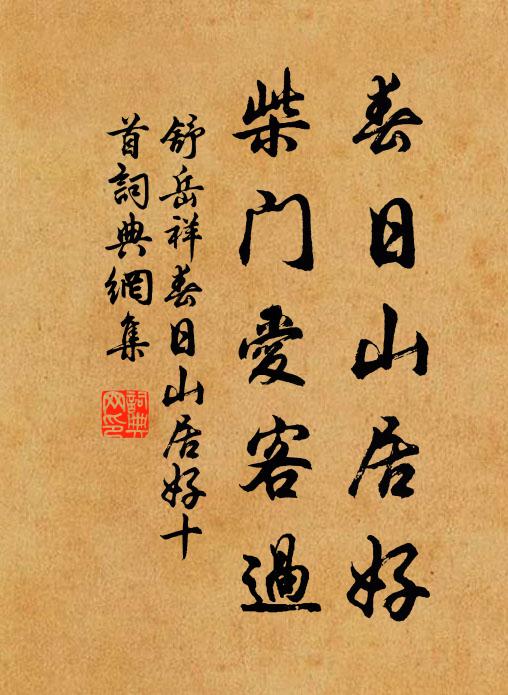 春日山居好
柴门愛客過
舒岳祥春日山居好十
首詞典網集
詞典
网印